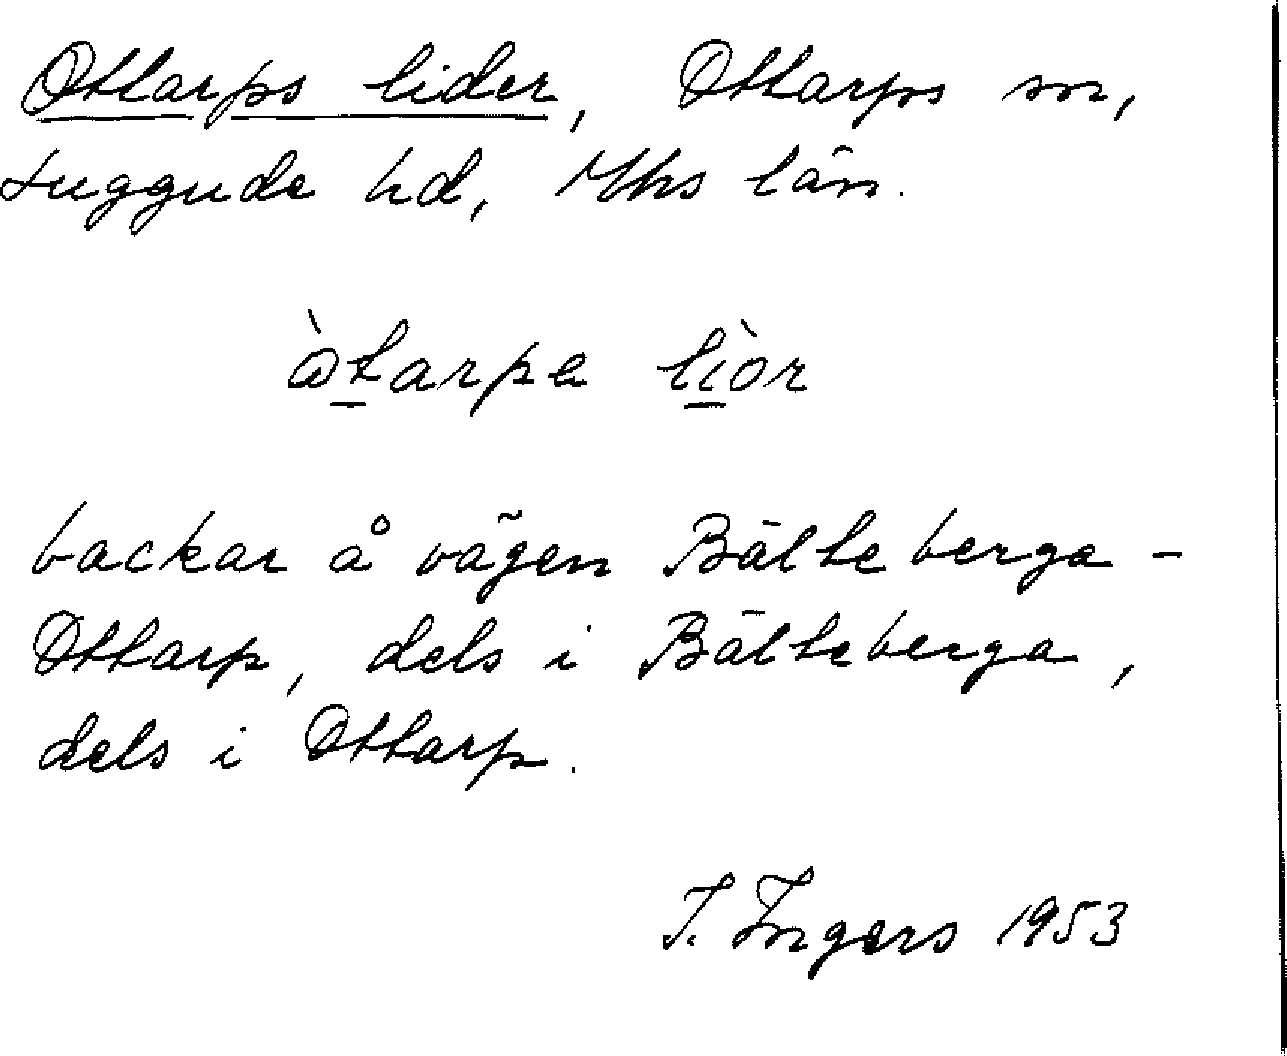 Ottarps lider, Ottarps sn,
Luggude hd, Mhs län.
òtarpa lìor
backar å vägen Bälteberga -
Ottarp, dels i Bälteberga,
dels i Ottarp.
I. Ingers 1953